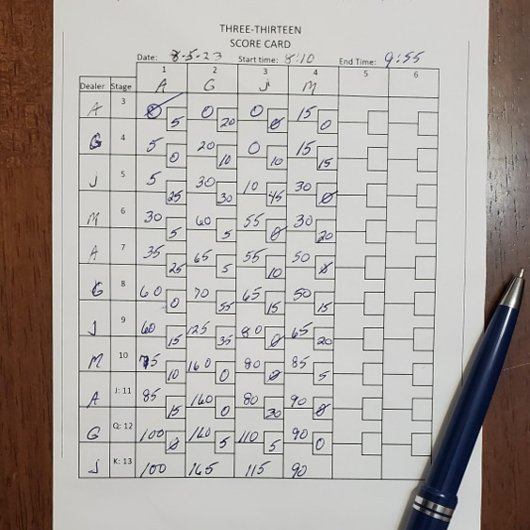 THREE-THIRTEEN
SCORE CARD
Date: 8-5-23 Start time: 8:10 End Time: 9:55
1 2 3 4 5 6
Dealer Stage A G J M
A 3 0 5 0 20 0 0 15 0
G 4 5 0 20 10 0 10 15 15
J 5 5 25 30 30 10 45 30 0
M 6 30 5 60 5 55 0 30 20
A 7 35 25 65 5 55 10 50 0
G 8 60 0 70 55 65 15 50 15
J 9 60 15 125 35 80 0 65 20
M 10 75 10 160 0 80 0 85 5
A J: 11 85 15 160 0 80 30 90 0
G Q: 12 100 0 160 5 110 5 90 0
J K: 13 100 165 115 90